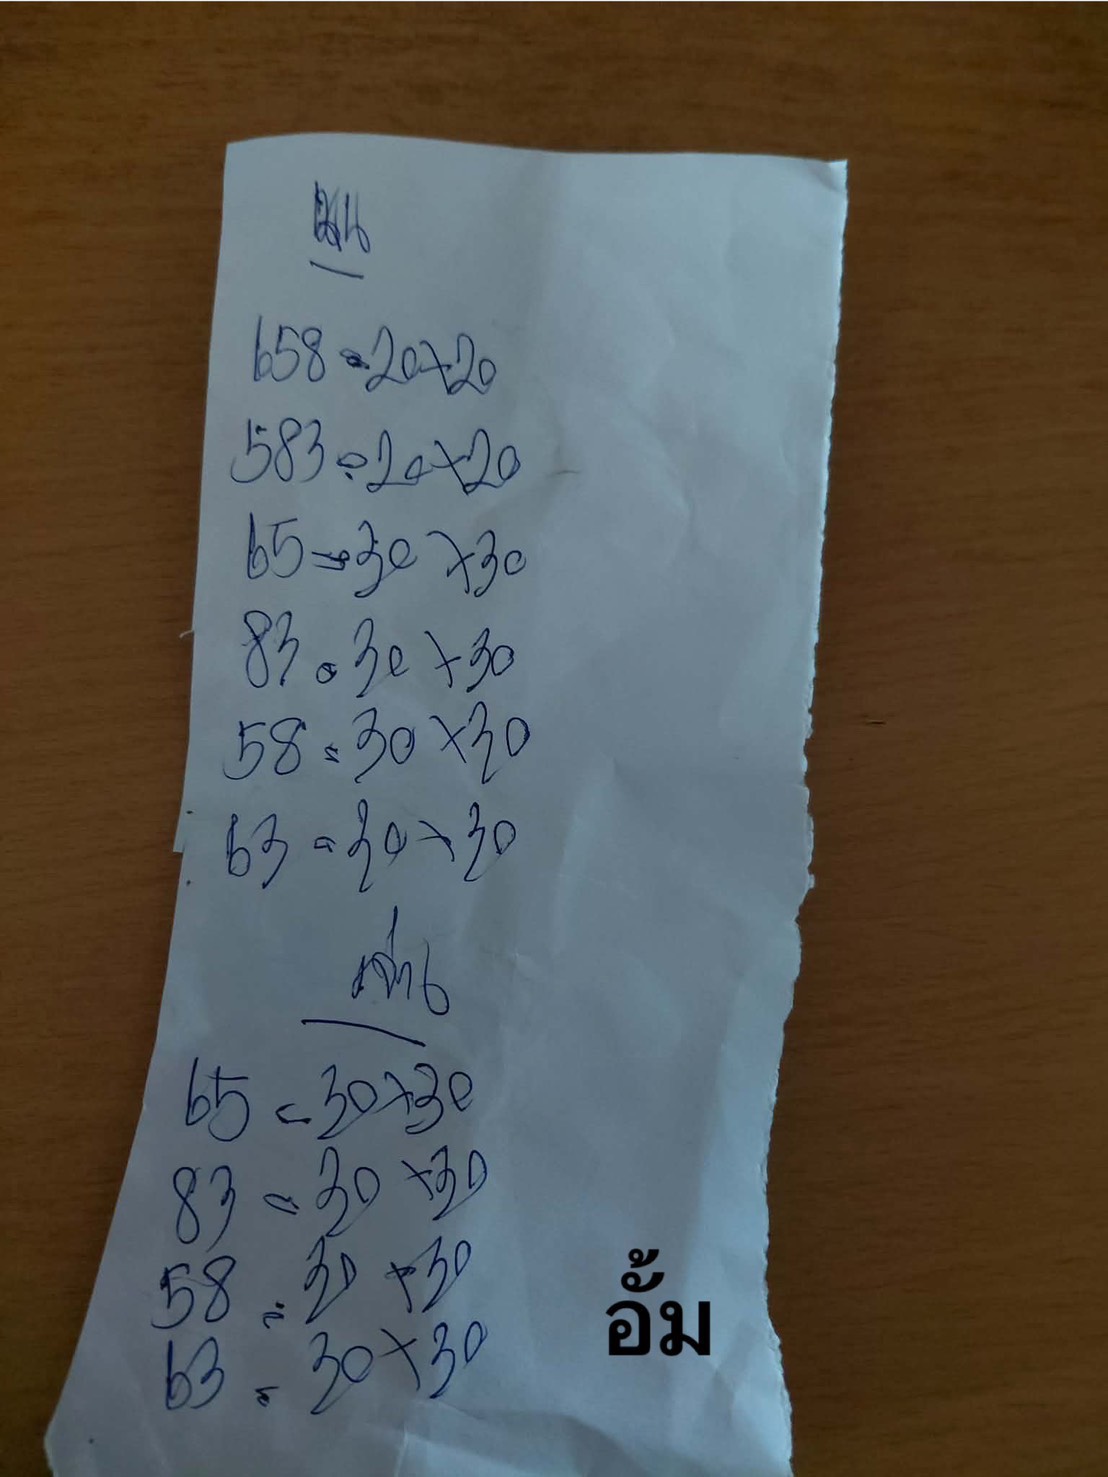 บน
658=20×20
583=20×20
65=30×30
83=30×30
58=30×30
63=30×30
ล่าง
65=30×30
83=30×30
58=30×30
63=30×30
อั้ม